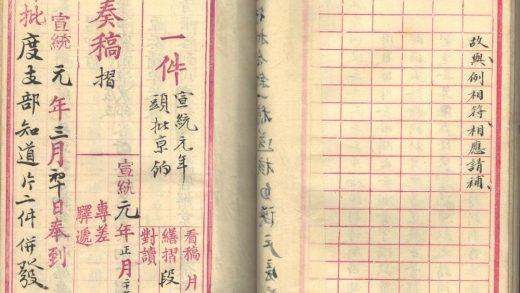 故與例相符、相應請補、
一件
宣統元年
頭批京餉
看稿 月
繕摺 段
對讀
宣統元年正月二十
專差
驛遞
奏稿摺
宣統元年三月日奉到
批度支部知道片二件併發